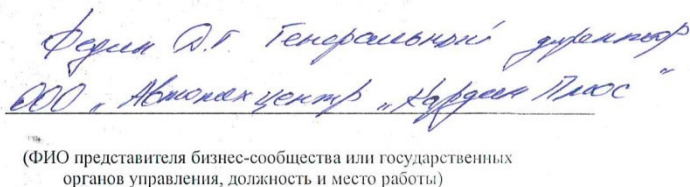 Федин Д.Г. Генеральный директор
ООО „Автомакцентр „Кардан Плюс"
(ФИО представителя бизнес-сообщества или государственных
органов управления, должность и место работы)